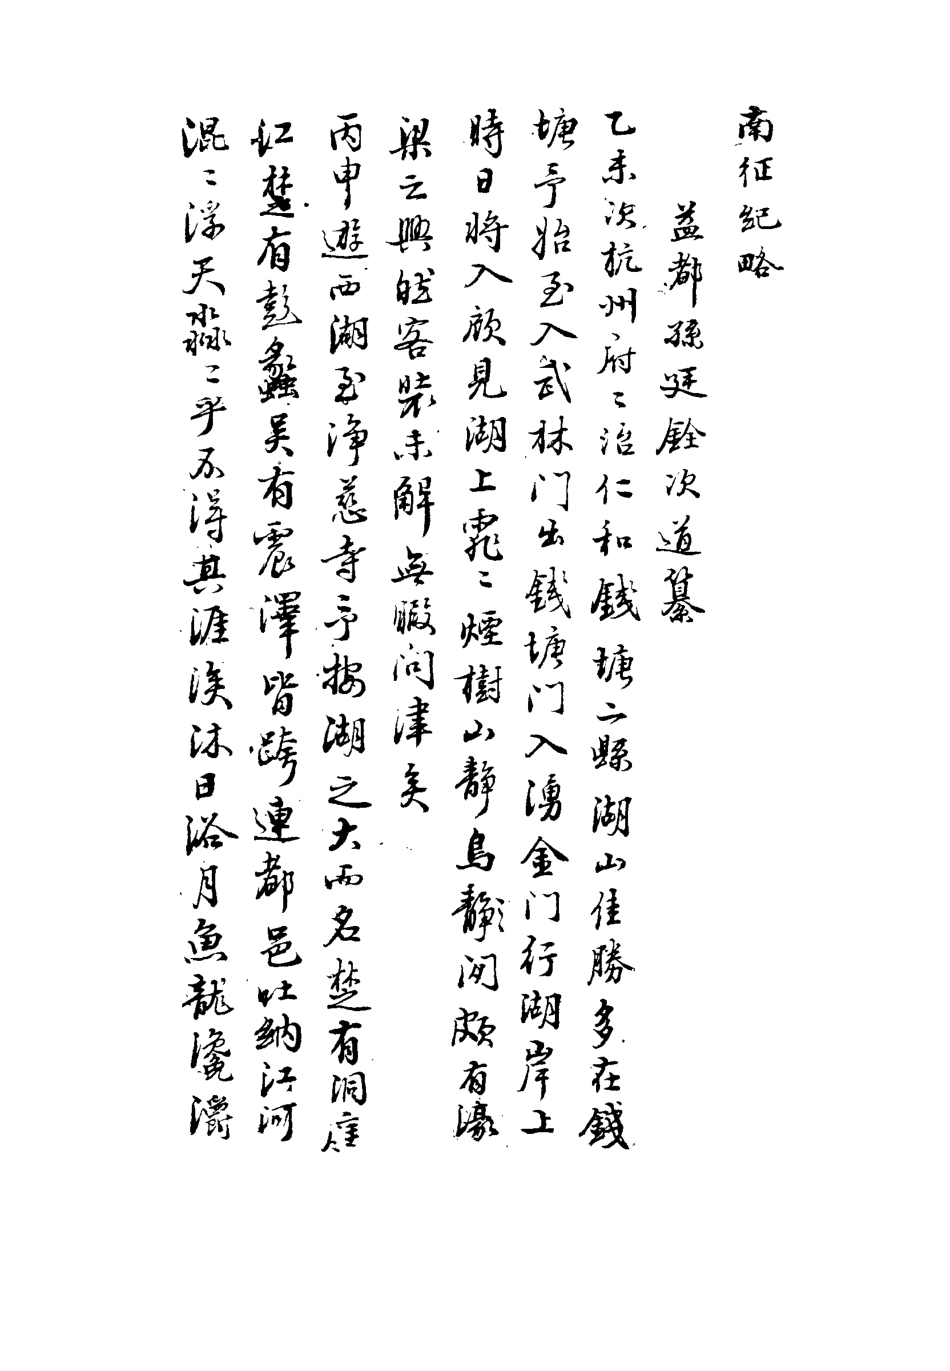 南征紀略
益都孫廷銓次道纂
乙未次杭州府〻治仁和錢塘二縣湖山佳勝多在錢
塘予始至入武林門出錢塘門入湧金門行湖岸上
時日將入顧見湖上霏〻煙樹山靜鳥靜閒頗有濠
梁之興時客裝未解無暇问津矣
丙申遊西湖至淨慈寺予按湖之大而名楚有洞庭
江楚有彭蠡吳有震澤皆跨連都邑吐納江河
混〻浮天淼〻乎不得其涯涘沐日浴月魚龍瀺灂